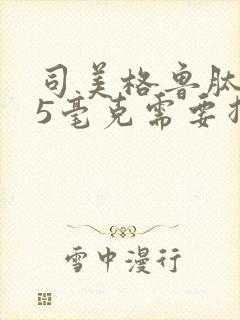 司美格鲁肽
5毫克需要
雪中漫行